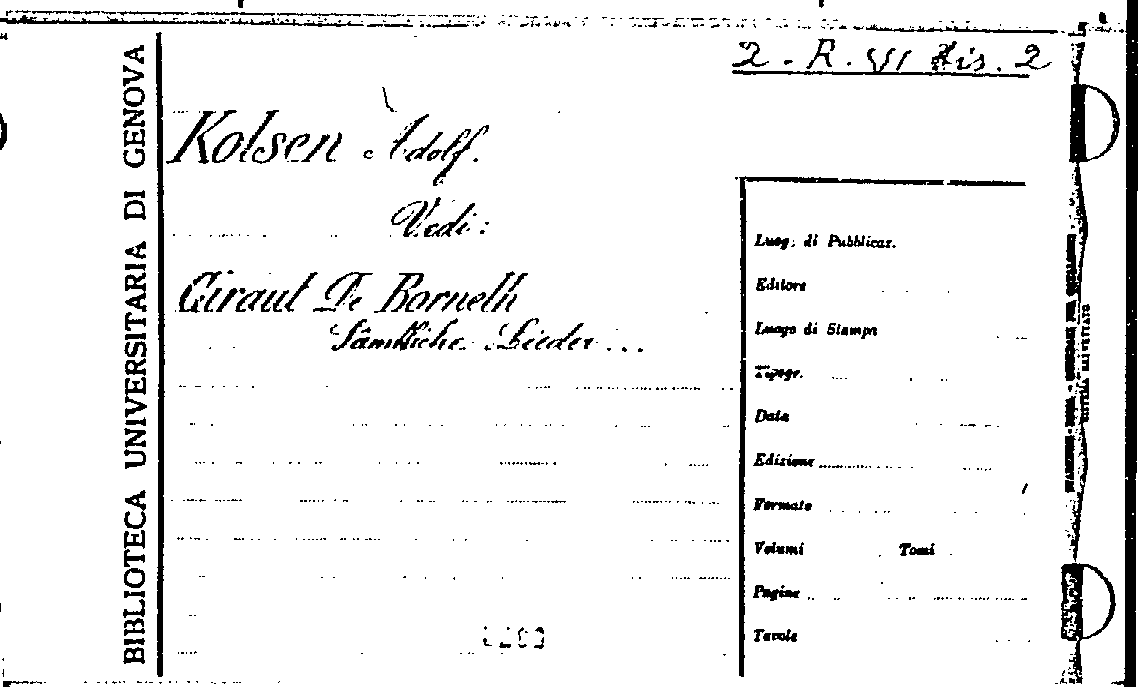 2 - R. VI Bis. 2
BIBLIOTECA UNIVERSITARIA DI GENOVA
Kolsen Adolf.
Vedi:
Giraut De Bornelh
Sämtliche Lieder ...
Luog. di Pubblicaz.
Editore
Luogo di Stampa
Tipogr.
Data
Edizione
Formato
Volumi Tomi
Pagine
Tavole